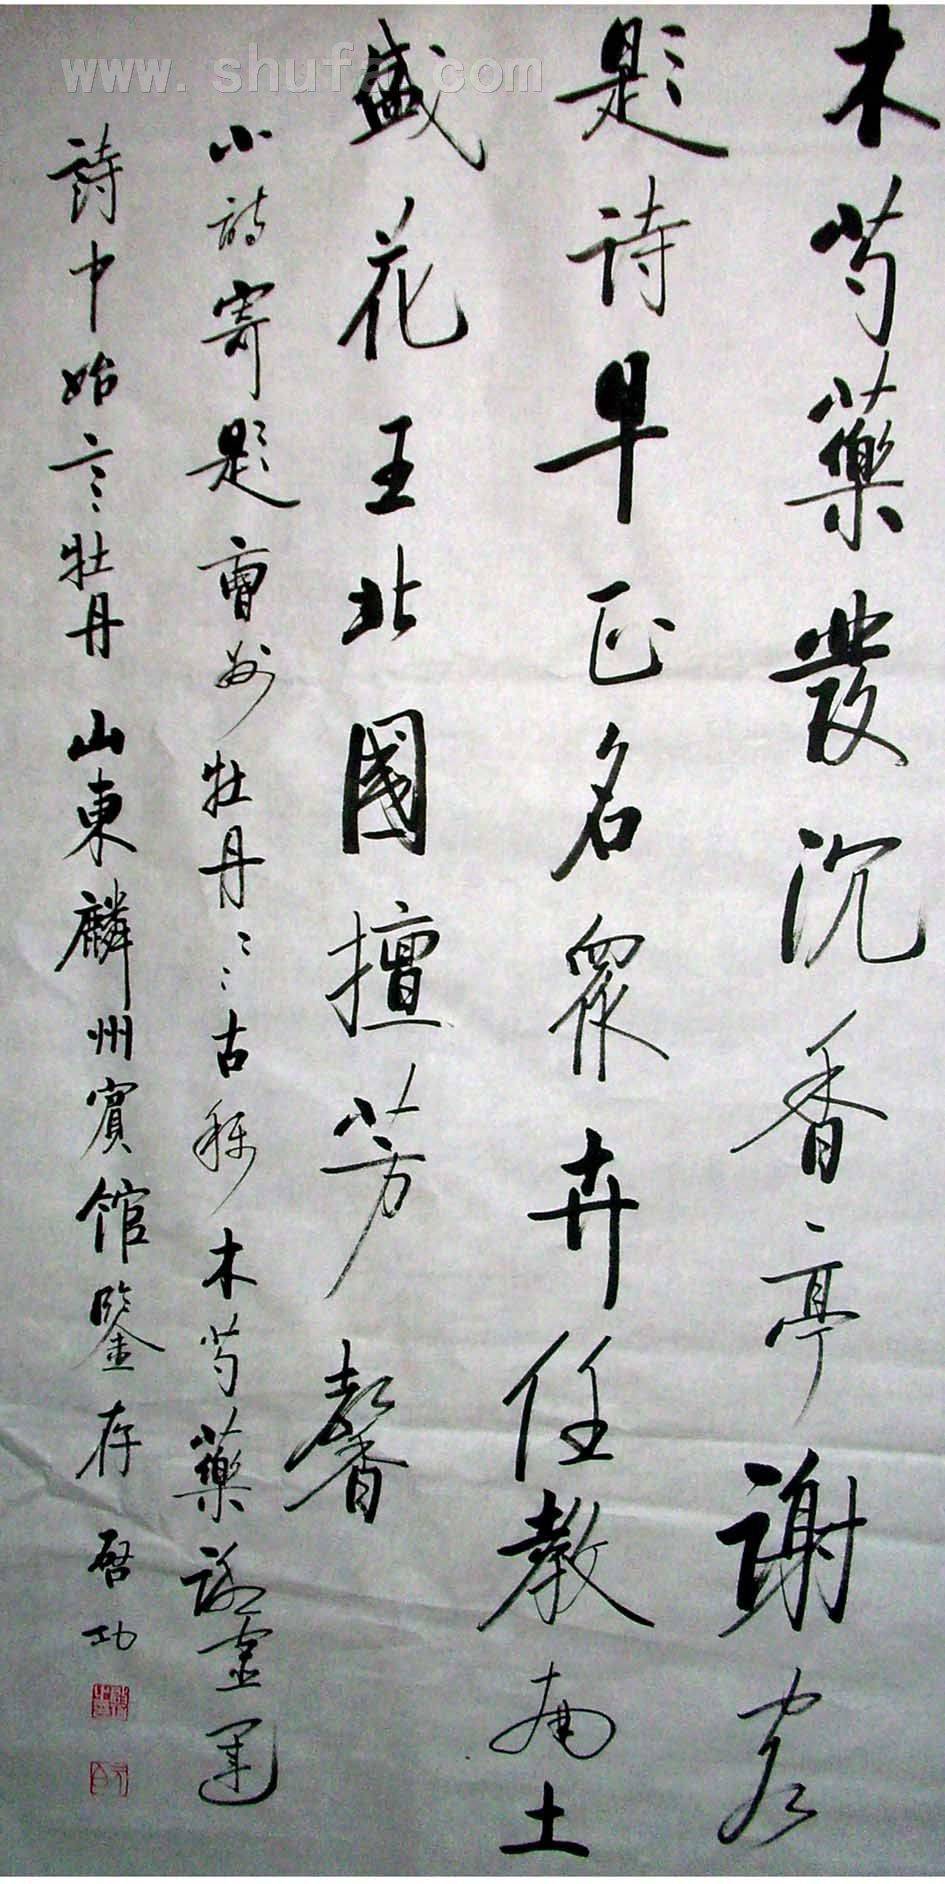 木芍藥叢沉香亭謝客
題詩早正名眾卉任教南土
盛花王北國擅芳馨
小詩寄題曹州牡丹牡丹古稱木芍藥謝靈運
詩中始言牡丹山東麟州賓館鑒存
啓功
www.shufa.com